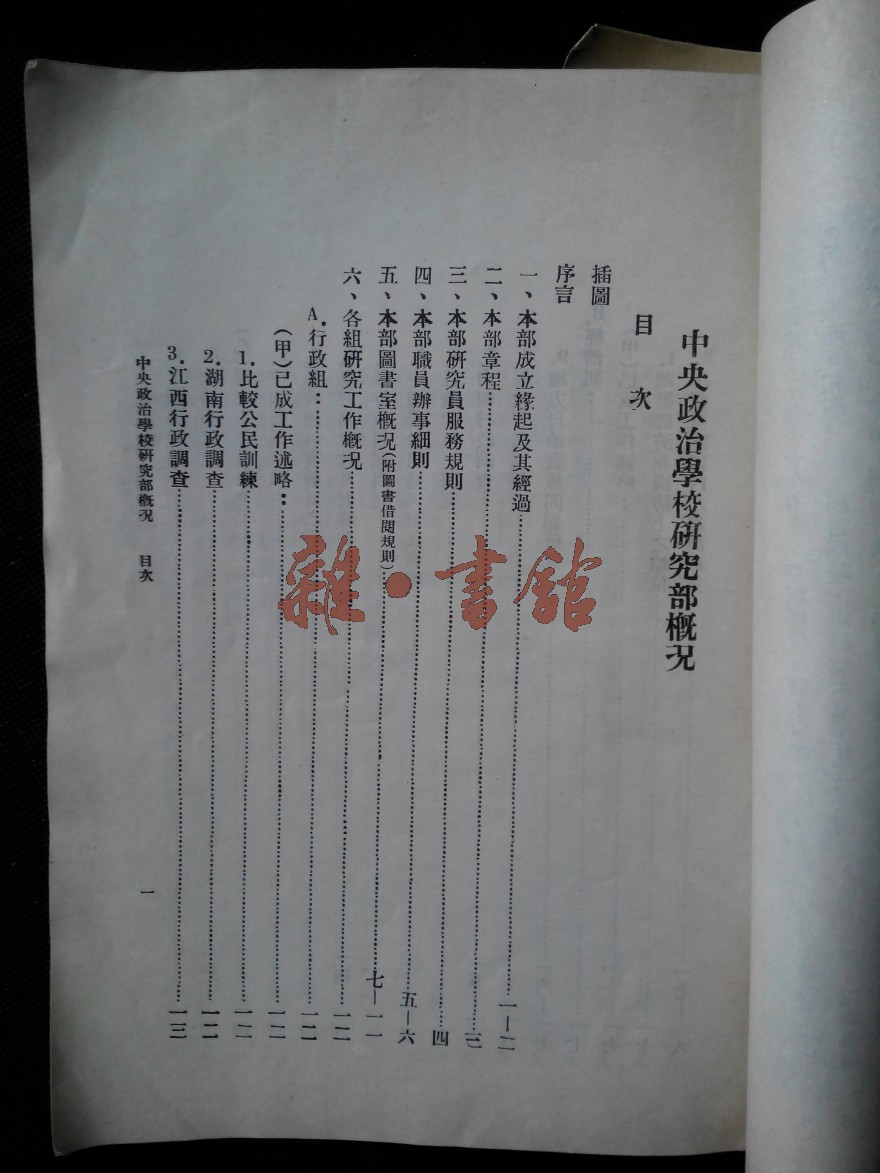 中央政治學校研究部概況
目次
插圖
序言
一、本部成立緣起及其經過……一—二
二、本部章程……三
三、本部研究員服務規則……四
四、本部職員辦事細則……五—六
五、本部圖書室概況（附圖書借閱規則）……七—一一
六、各組研究工作概況……一二
A.行政組：……一二
（甲）已成工作述略：……一二
1.比較公民訓練……一二
2.湖南行政調查……一二
3.江西行政調查……一三
中央政治學校研究部概況 目次 一
雜·書館